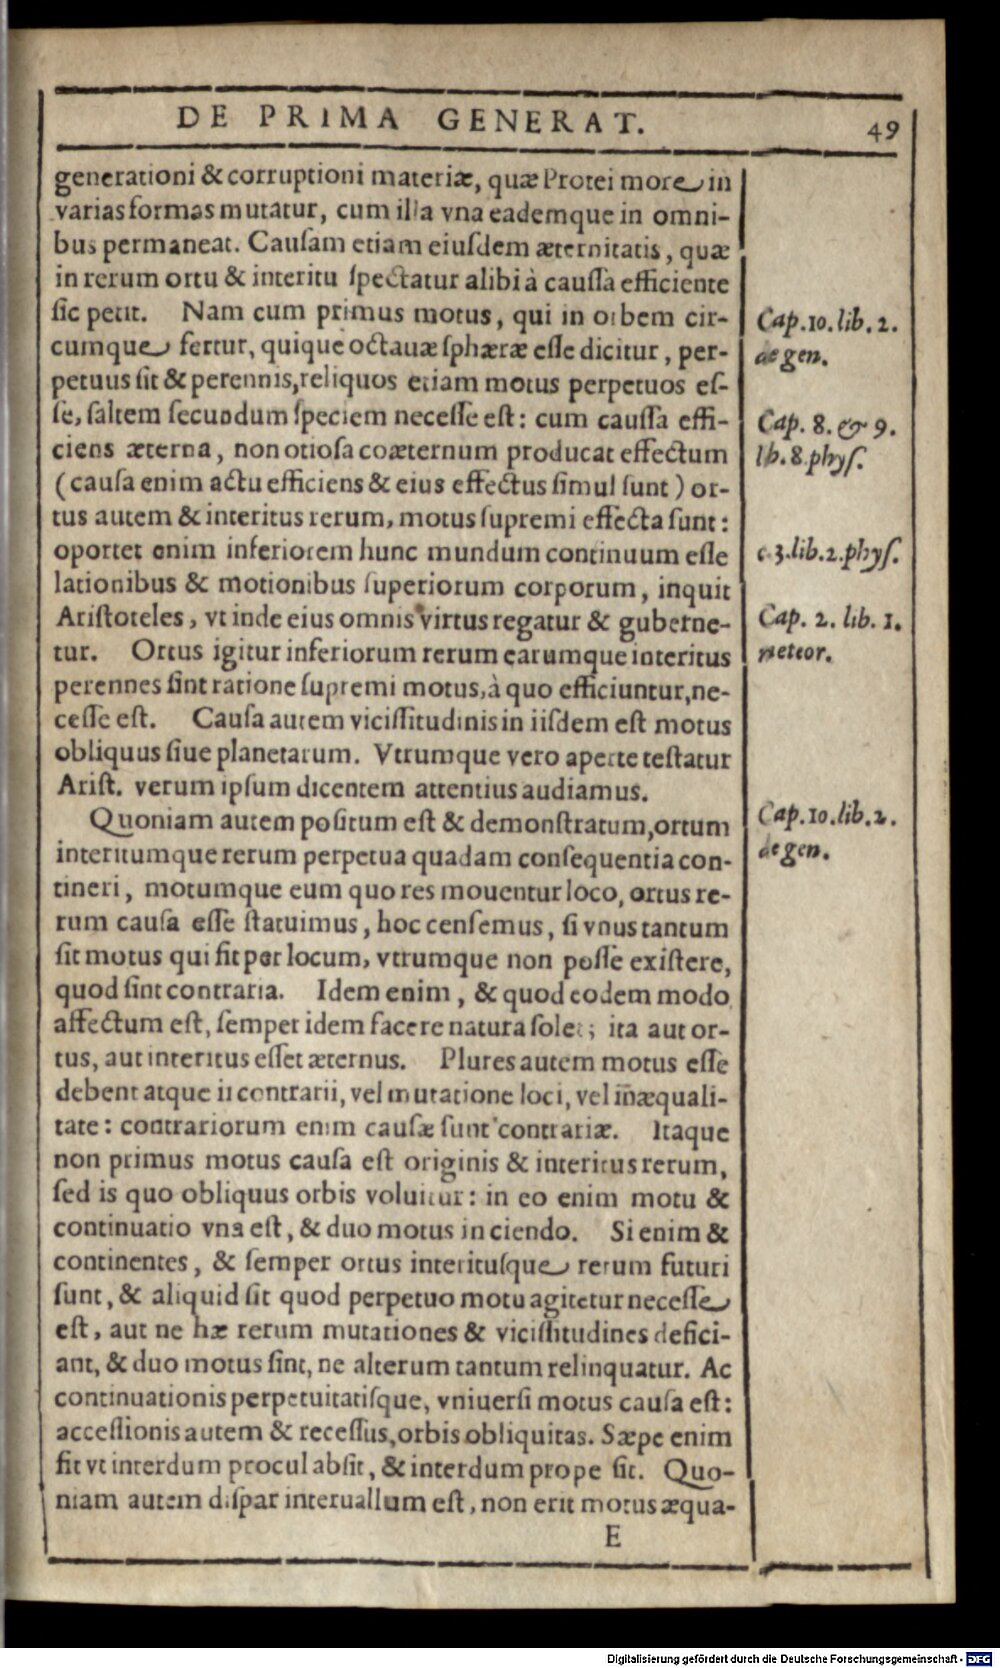 DE PRIMA GENERAT.
49
generationi & corruptioni materiæ, quæ Protei more in
varias formas mutatur, cum illa vna eademque in omni-
bus permaneat. Causam etiam eiusdem æternitatis, quæ
in rerum ortu & interitu spectatur alibi à caussa efficiente
sic petit. Nam cum primus motus, qui in orbem cir-
cumque fertur, quique octauæ sphæræ esse dicitur, per-
petuus sit & perennis, reliquos etiam motus perpetuos es-
se, saltem secundum speciem necesse est: cum caussa effi-
ciens æterna, non otiosa coæternum producat effectum
(causa enim actu efficiens & eius effectus simul sunt) or-
tus autem & interitus rerum, motus supremi effecta sunt:
oportet enim inferiorem hunc mundum continuum esse
lationibus & motionibus superiorum corporum, inquit
Aristoteles, vt inde eius omnis virtus regatur & guberne-
tur. Ortus igitur inferiorum rerum earumque interitus
perennes sint ratione supremi motus, à quo efficiuntur, ne-
cesse est. Causa autem vicissitudinis in iisdem est motus
obliquus siue planetarum. Vtrumque vero aperte testatur
Arist. verum ipsum dicentem attentius audiamus.
Quoniam autem positum est & demonstratum, ortum
interitumque rerum perpetua quadam consequentia con-
tineri, motumque eum quo res mouentur loco, ortus re-
rum causa esse statuimus, hoc censemus, si vnus tantum
sit motus qui fit per locum, vtrumque non posse existere,
quod sint contraria. Idem enim, & quod eodem modo
affectum est, semper idem facere natura solet; ita aut or-
tus, aut interitus esset æternus. Plures autem motus esse
debent atque ii contrarii, vel mutatione loci, vel inæquali-
tate: contrariorum enim causæ sunt contrariæ. Itaque
non primus motus causa est originis & interitus rerum,
sed is quo obliquus orbis voluitur: in eo enim motu &
continuatio vna est, & duo motus in ciendo. Si enim &
continentes, & semper ortus interitusque rerum futuri
sunt, & aliquid sit quod perpetuo motu agitetur necesse
est, aut ne hæ rerum mutationes & vicissitudines defici-
ant, & duo motus sint, ne alterum tantum relinquatur. Ac
continuationis perpetuitatisque, vniuersi motus causa est:
accessionis autem & recessus, orbis obliquitas. Sæpe enim
fit vt interdum procul absit, & interdum prope sit. Quo-
niam autem dispar interuallum est, non erit motus æqua-
E
Cap. 10. lib. 2.
de gen.
Cap. 8. & 9.
lb. 8. phys.
c. 3. lib. 2. phys.
Cap. 2. lib. 1.
meteor.
Cap. 10. lib. 2.
de gen.
Digitalisierung gefördert durch die Deutsche Forschungsgemeinschaft - DFG